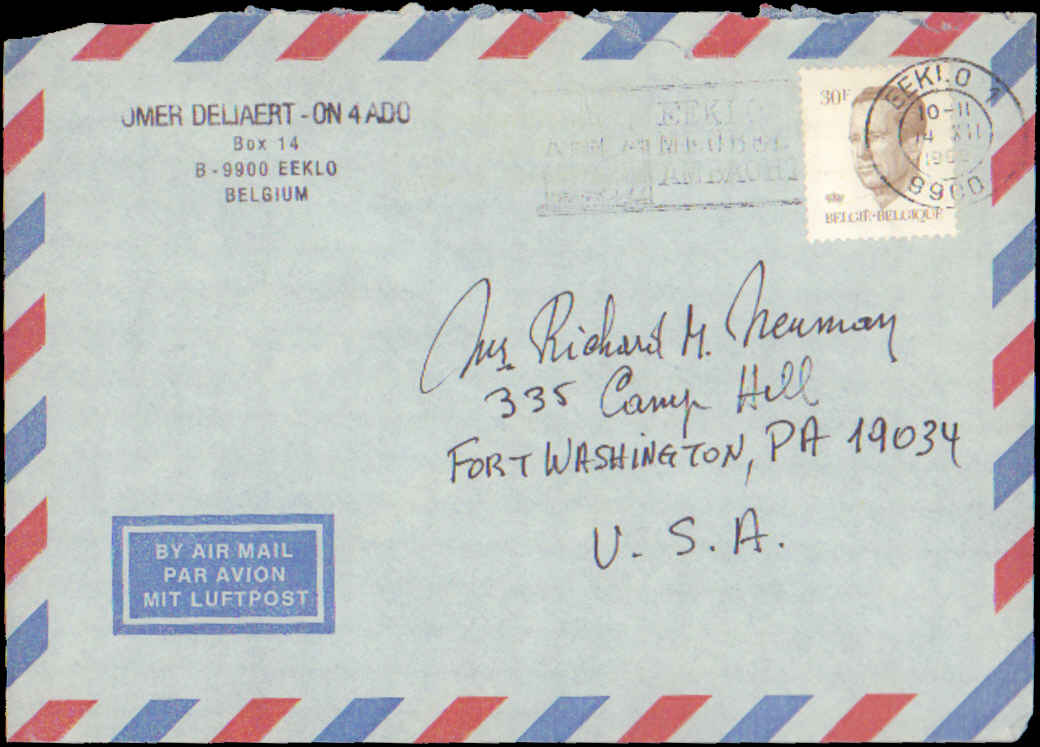 OMER DELIAERT - ON 4 ADO
Box 14
B-9900 EEKLO
BELGIUM
EEKLO
30F
EEKLO 1
10-11
14 XII
9900
BELGIË·BELGIQUE
Mrs. Richard M. Neuman
335 Camp Hill
FORT WASHINGTON, PA 19034
U. S. A.
BY AIR MAIL
PAR AVION
MIT LUFTPOST